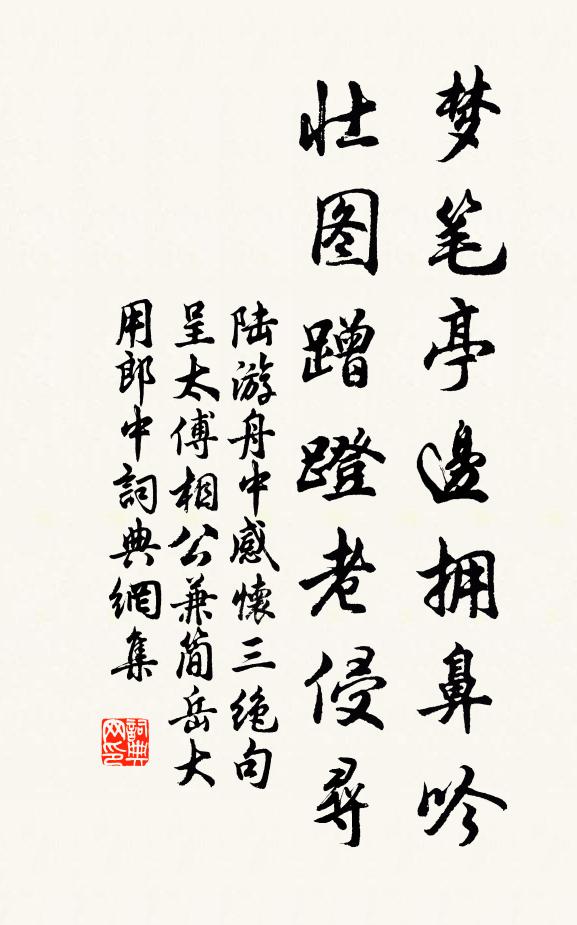 梦笔亭邊拥鼻吟
壮图蹭蹬老侵尋
陆游舟中感懷三绝句
呈太傅相公兼简岳大
用郎中詞典網集
詞典网印